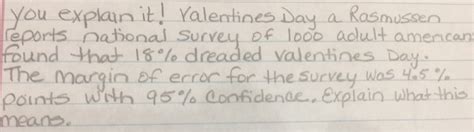 you explain it! Valentines Day a Rasmussen
reports national survey of 1000 adult american
found that 18% dreaded valentines Day.
The margin of error for the survey was 4.5%
points with 95% Confidence. Explain what this
means.